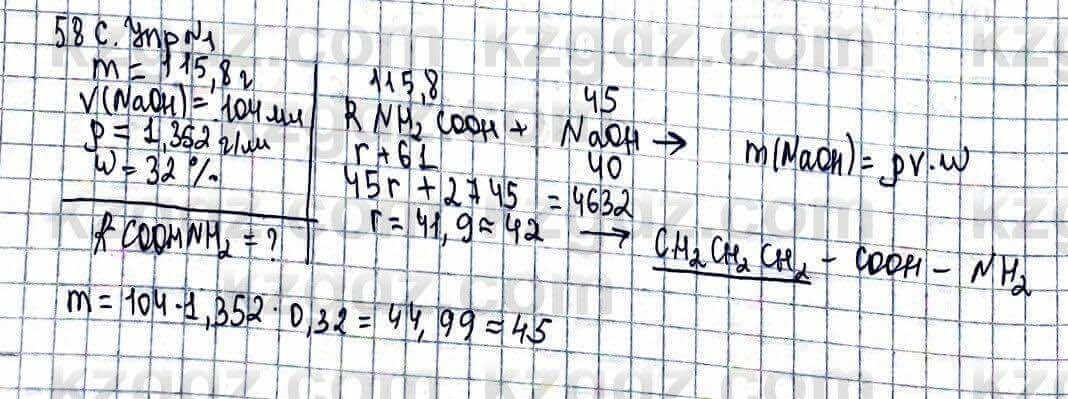 58 с. Упр №1
m = 115,8 г
V(NaOH) = 104 мл
ρ = 1,352 г/мл
W = 32 %
R COOHNH₂ = ?
115,8 45
R NH₂ COOH + NaOH → m(NaOH) = ρV·W
r + 61 40
45r + 2745 = 4632
r = 41,9 ≈ 42 → CH₂CH₂CH₂ - COOH - NH₂
m = 104 · 1,352 · 0,32 = 44,99 ≈ 45
kzgdz.com